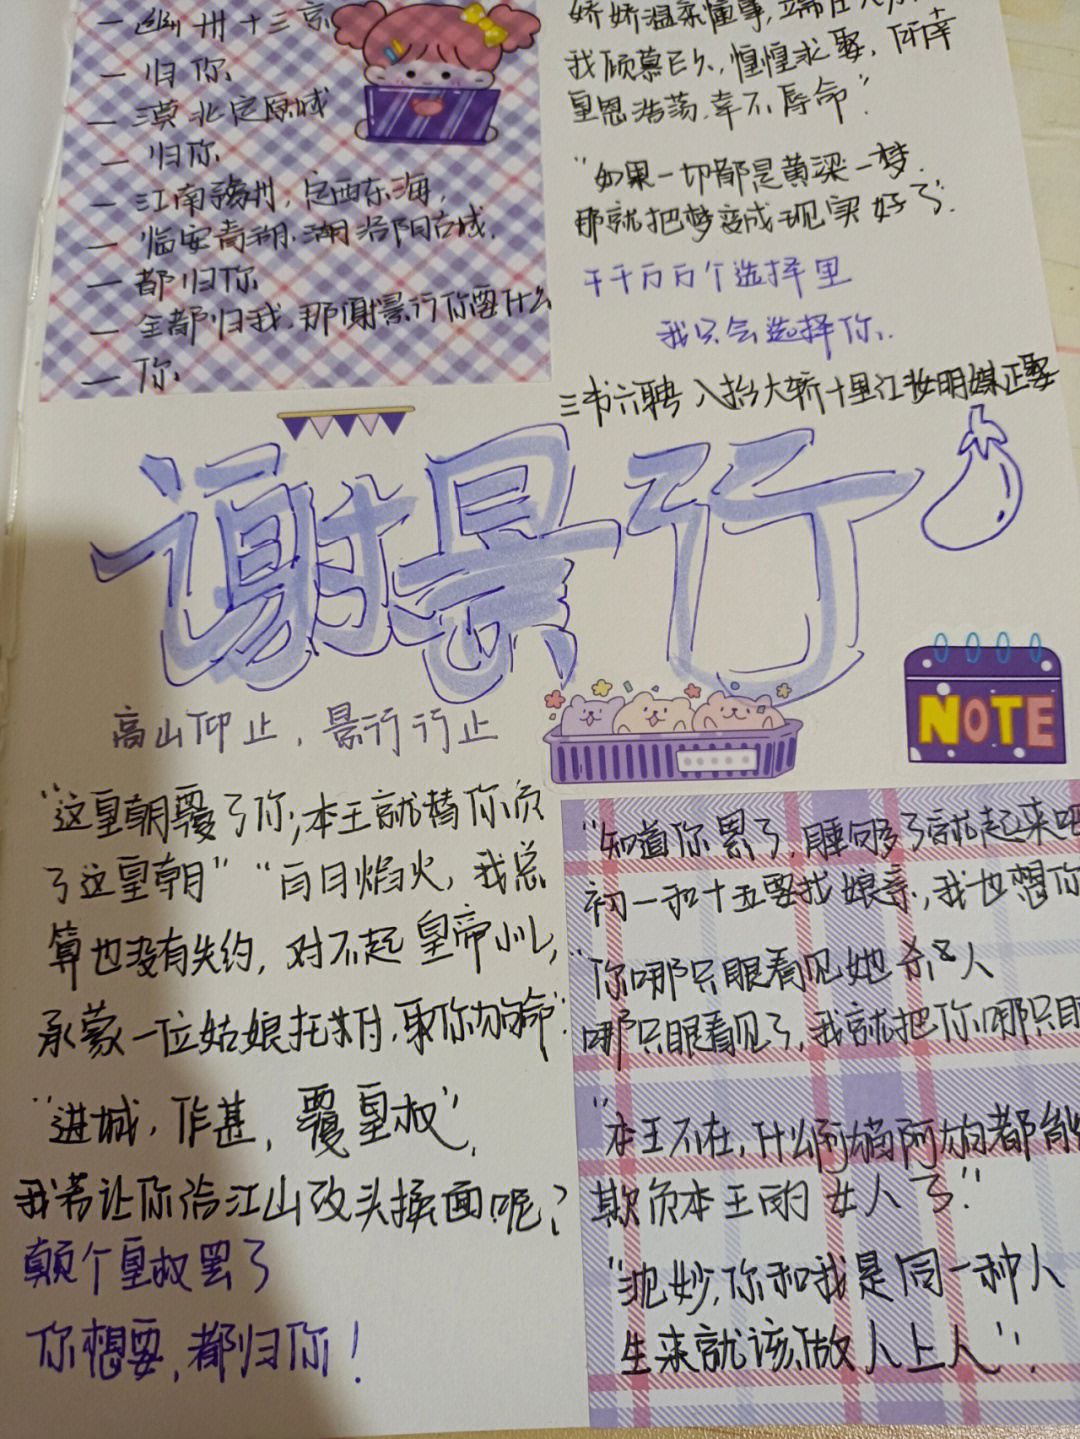 一 幽州十三京
一 归你
一 漠北定原城
一 归你
一 江南豫州,定西东海,
一 临安青湖.湖洛阳古城,
一 都归你
一 全都归我,那谢景行你要什么
一 你
娇娇温柔懂事,端庄大方
我倾慕已久,惶惶求娶,所幸
皇恩浩荡.幸不辱命”
“如果一切都是黄梁一梦.
那就把梦变成现实好了.
千千万万个选择里
我只会选择你.
三书六聘 八抬大轿十里红妆明媒正娶
谢景行
高山仰止,景行行止
NOTE
“这皇朝覆了你,本王就替你颠
了这皇朝” “百日焰火,我总
算也没有失约,对不起 皇帝小儿,
承蒙一位姑娘托付,取你狗命”
“进城,作甚,覆皇权”,
我若让你给江山改头换面呢?
颠个皇权罢了
你想要,都归你!
“知道你累了,睡够了就起来吧
初一和十五要找娘亲,我也想你
“你哪只眼看见她杀人
哪只眼看见了,我就把你哪只眼
“本王不在,什么阿猫阿狗都能
欺负本王的女人了”
“沈妙,你和我是同一种人
生来就该做人上人”,